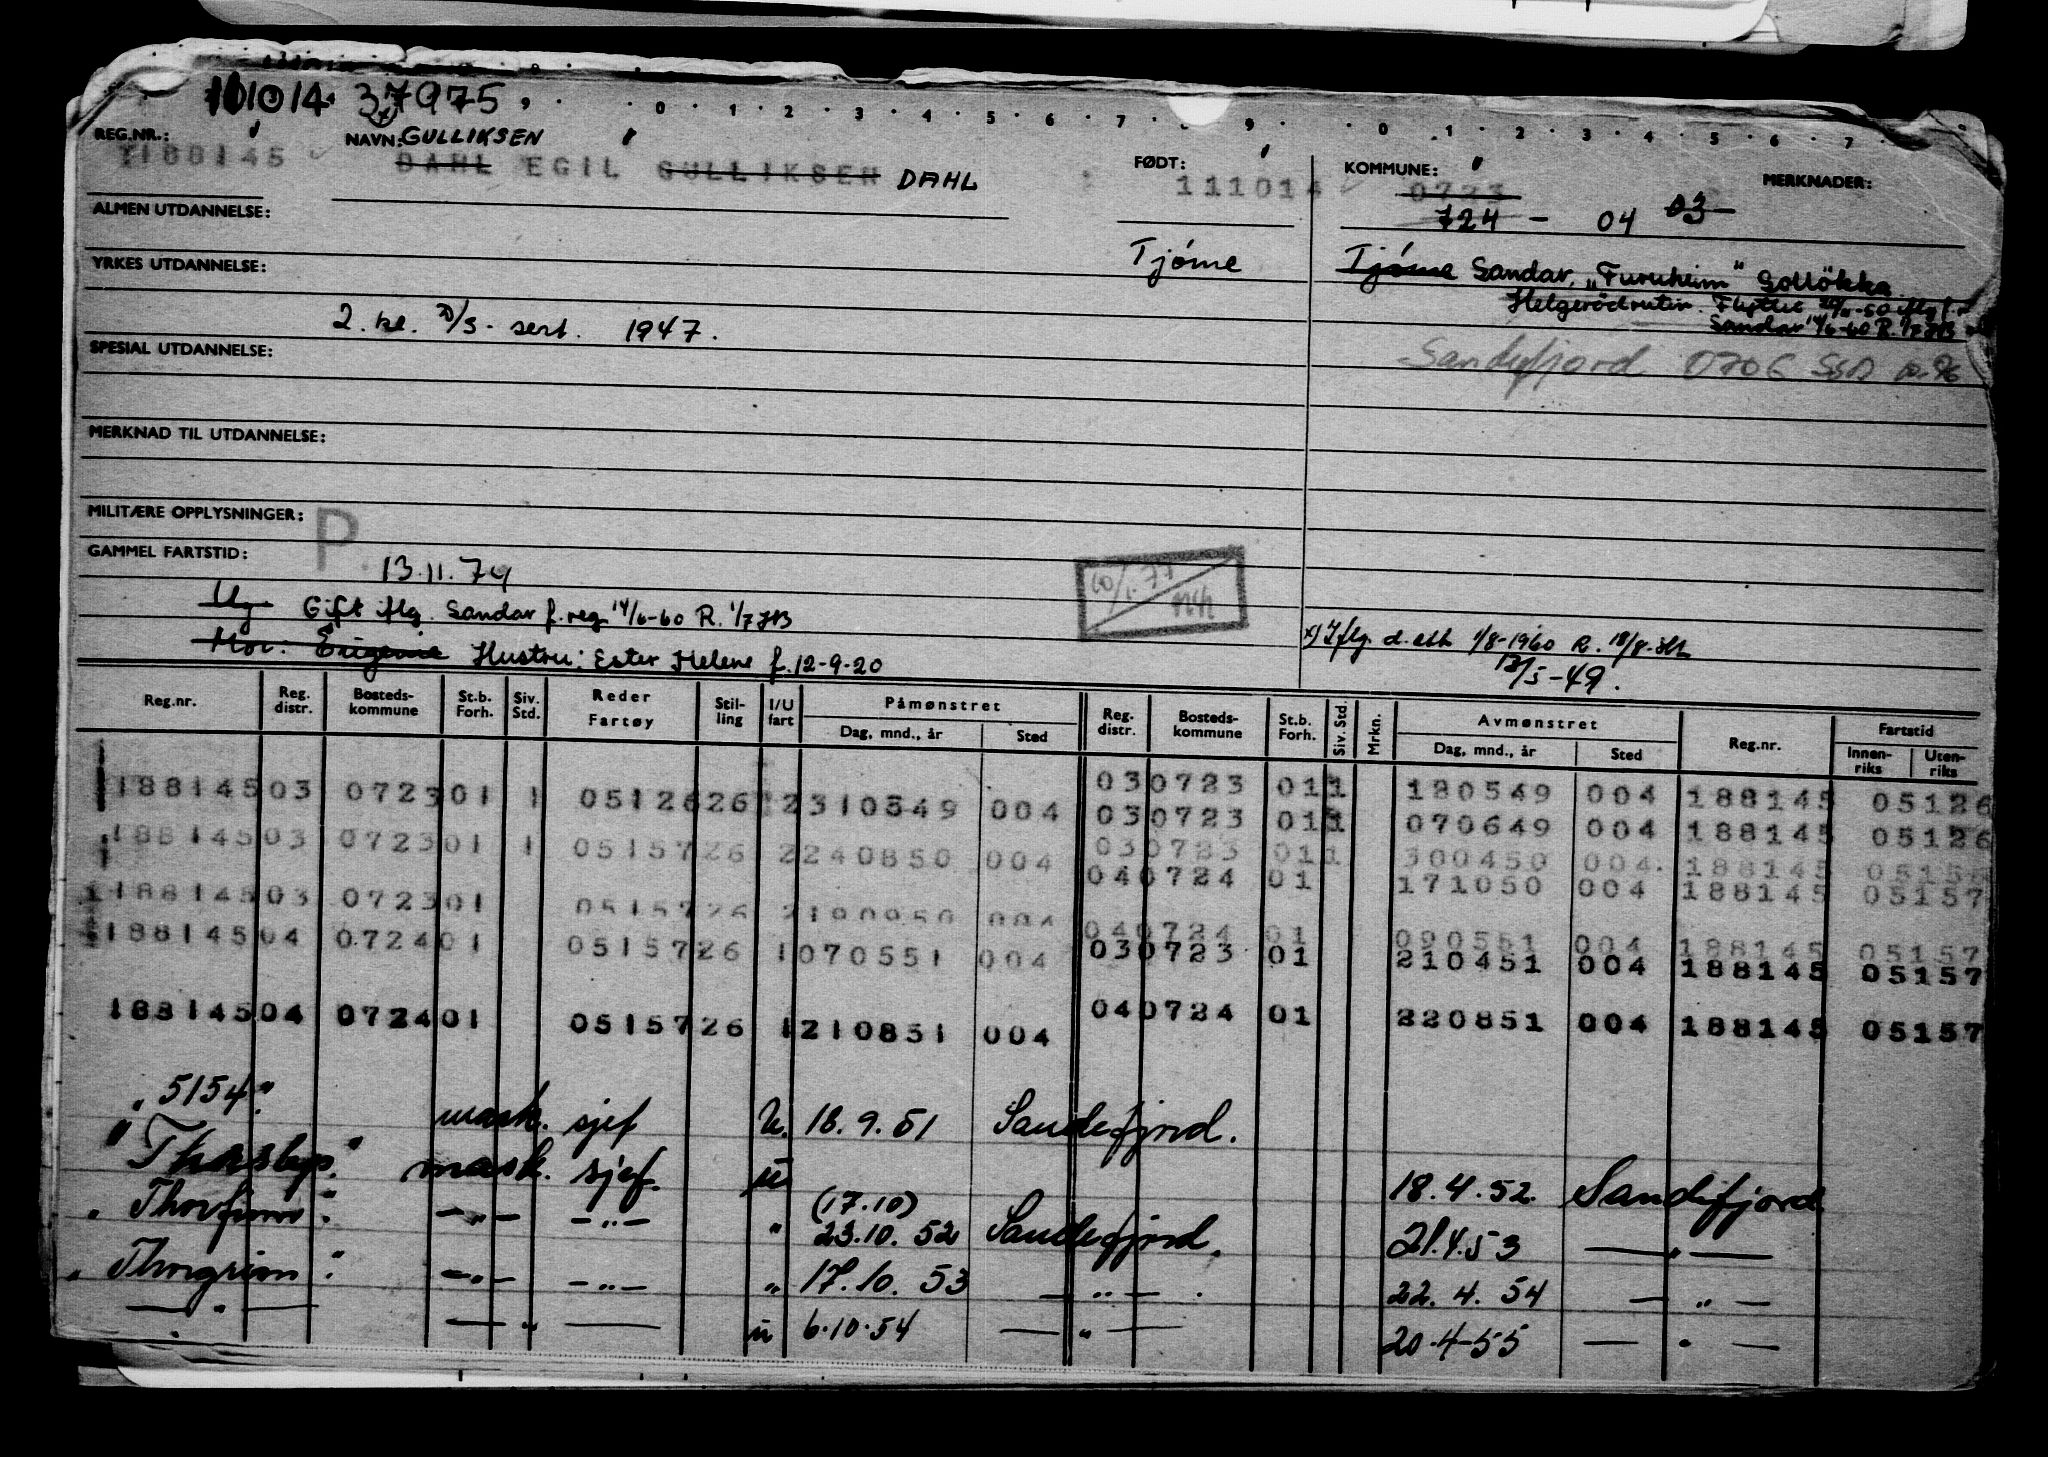 111014 37975
0 · 1 · 2 · 3 · 4 · 5 · 6 · 7 · 9 · 0 · 1 · 2 · 3 · 4 · 5 · 6 · 7 ·
REG.NR.: NAVN: GULLIKSEN FØDT: KOMMUNE: MERKNADER:
188145 DAHL EGIL GULLIKSEN DAHL 111014 0723
724 - 04 03
ALMEN UTDANNELSE:
Tjöme Tjöme Sandar, "Furuheim" Gollökka
YRKES UTDANNELSE:
Helgerödruten. Flyttet
2. kl. D/S - sert. 1947. Sandar 14/6-60 R. 1/7 JHB
SPESIAL UTDANNELSE:
Sandefjord 0706 SSD
MERKNAD TIL UTDANNELSE:
MILITÆRE OPPLYSNINGER:
P.
GAMMEL FARTSTID:
13.11.74
Ug. Gift iflg. Sandar f.reg 14/6-60 R. 1/7 JHB
x) Iflg. d.att 1/8-1960 R. 18/8
Mor: Eugenie Hustru: Ester Helene f. 12-9-20
13/5-49.
Reg.nr. Reg. distr. Bosteds-kommune St.b. Forh. Siv. Std. Reder Fartøy Stil-ling I/U fart Påmønstret Dag, mnd., år Sted Reg. distr. Bosteds-kommune St.b. Forh. Siv. Std. Mrkn. Avmønstret Dag, mnd., år Sted Reg.nr. Fartstid Innen-riks Uten-riks
030723 01 1 180549 004 188145 05126
188145 03 0723 01 1 05126 26 2 310349 004
030723 01 1 070649 004 188145 05126
188145 03 0723 01 1 05157 26 2 240850 004
030723 01 1 300450 004 188145 05157
040724 01 171050 004 188145 05157
188145 03 0723 01 05157 26 2 190950 004
040724 01 090551 004 188145 05157
188145 04 0724 01 05157 26 1 070551 004
030723 01 210451 004 188145 05157
188145 04 0724 01 05157 26 1 210851 004
040724 01 220851 004 188145 05157
"5154" mask. sjef U. 18.9.51 Sandefjord.
mask. sjef. u 18.4.52. Sandefjord
"Thorfinn" -"- -"- " (17.10) 23.10.52 Sandefjord. 21.4.53 -"-
"Thorgrim" -"- -"- " 17.10.53 -"- 22.4.54 -"-
-"- -"- u 6.10.54 -"- 20-4-55 -"-